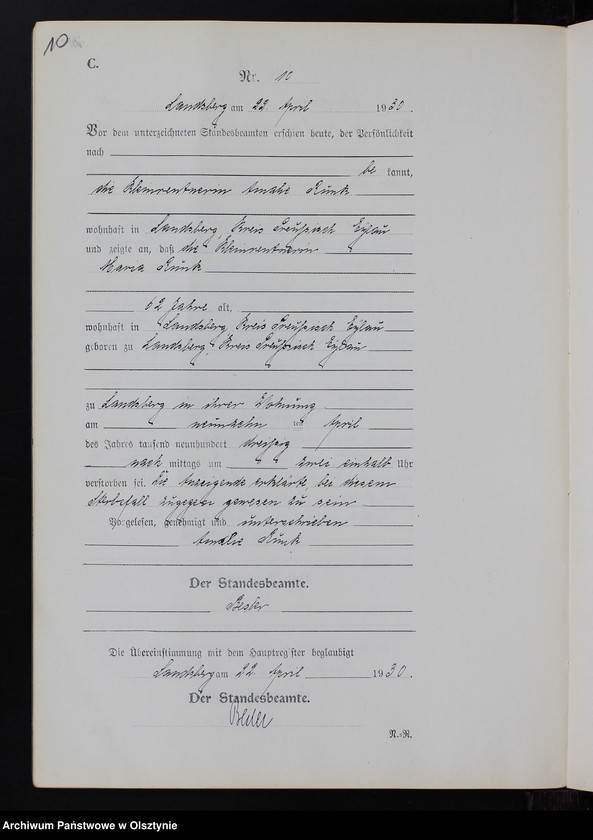 10
C.
Nr. 10
Landsberg am 22. April 1930.
Vor dem unterzeichneten Standesbeamten erschien heute, der Persönlichkeit
nach
be kannt,
die Kleinrentnerin Amalie Kunk
wohnhaft in Landsberg, Kreis Preußisch Eylau
und zeigte an, daß die Kleinrentnerin
Maria Kunk
62 Jahre alt,
wohnhaft in Landsberg, Kreis Preußisch Eylau
geboren zu Landsberg, Kreis Preußisch Eylau
zu Landsberg in ihrer Wohnung
am neunzehn ten April
des Jahres tausend neunhundert dreißig
nach mittags um zwei einhalb Uhr
verstorben sei. Die Anzeigende erklärte bei diesem
Sterbefall zugegen gewesen zu sein
Vorgelesen, genehmigt und unterschrieben
Amalie Kunk
Der Standesbeamte.
Die Übereinstimmung mit dem Hauptregister beglaubigt
Landsberg am 22. April 1930.
Der Standesbeamte.
N.=R.
Archiwum Państwowe w Olsztynie